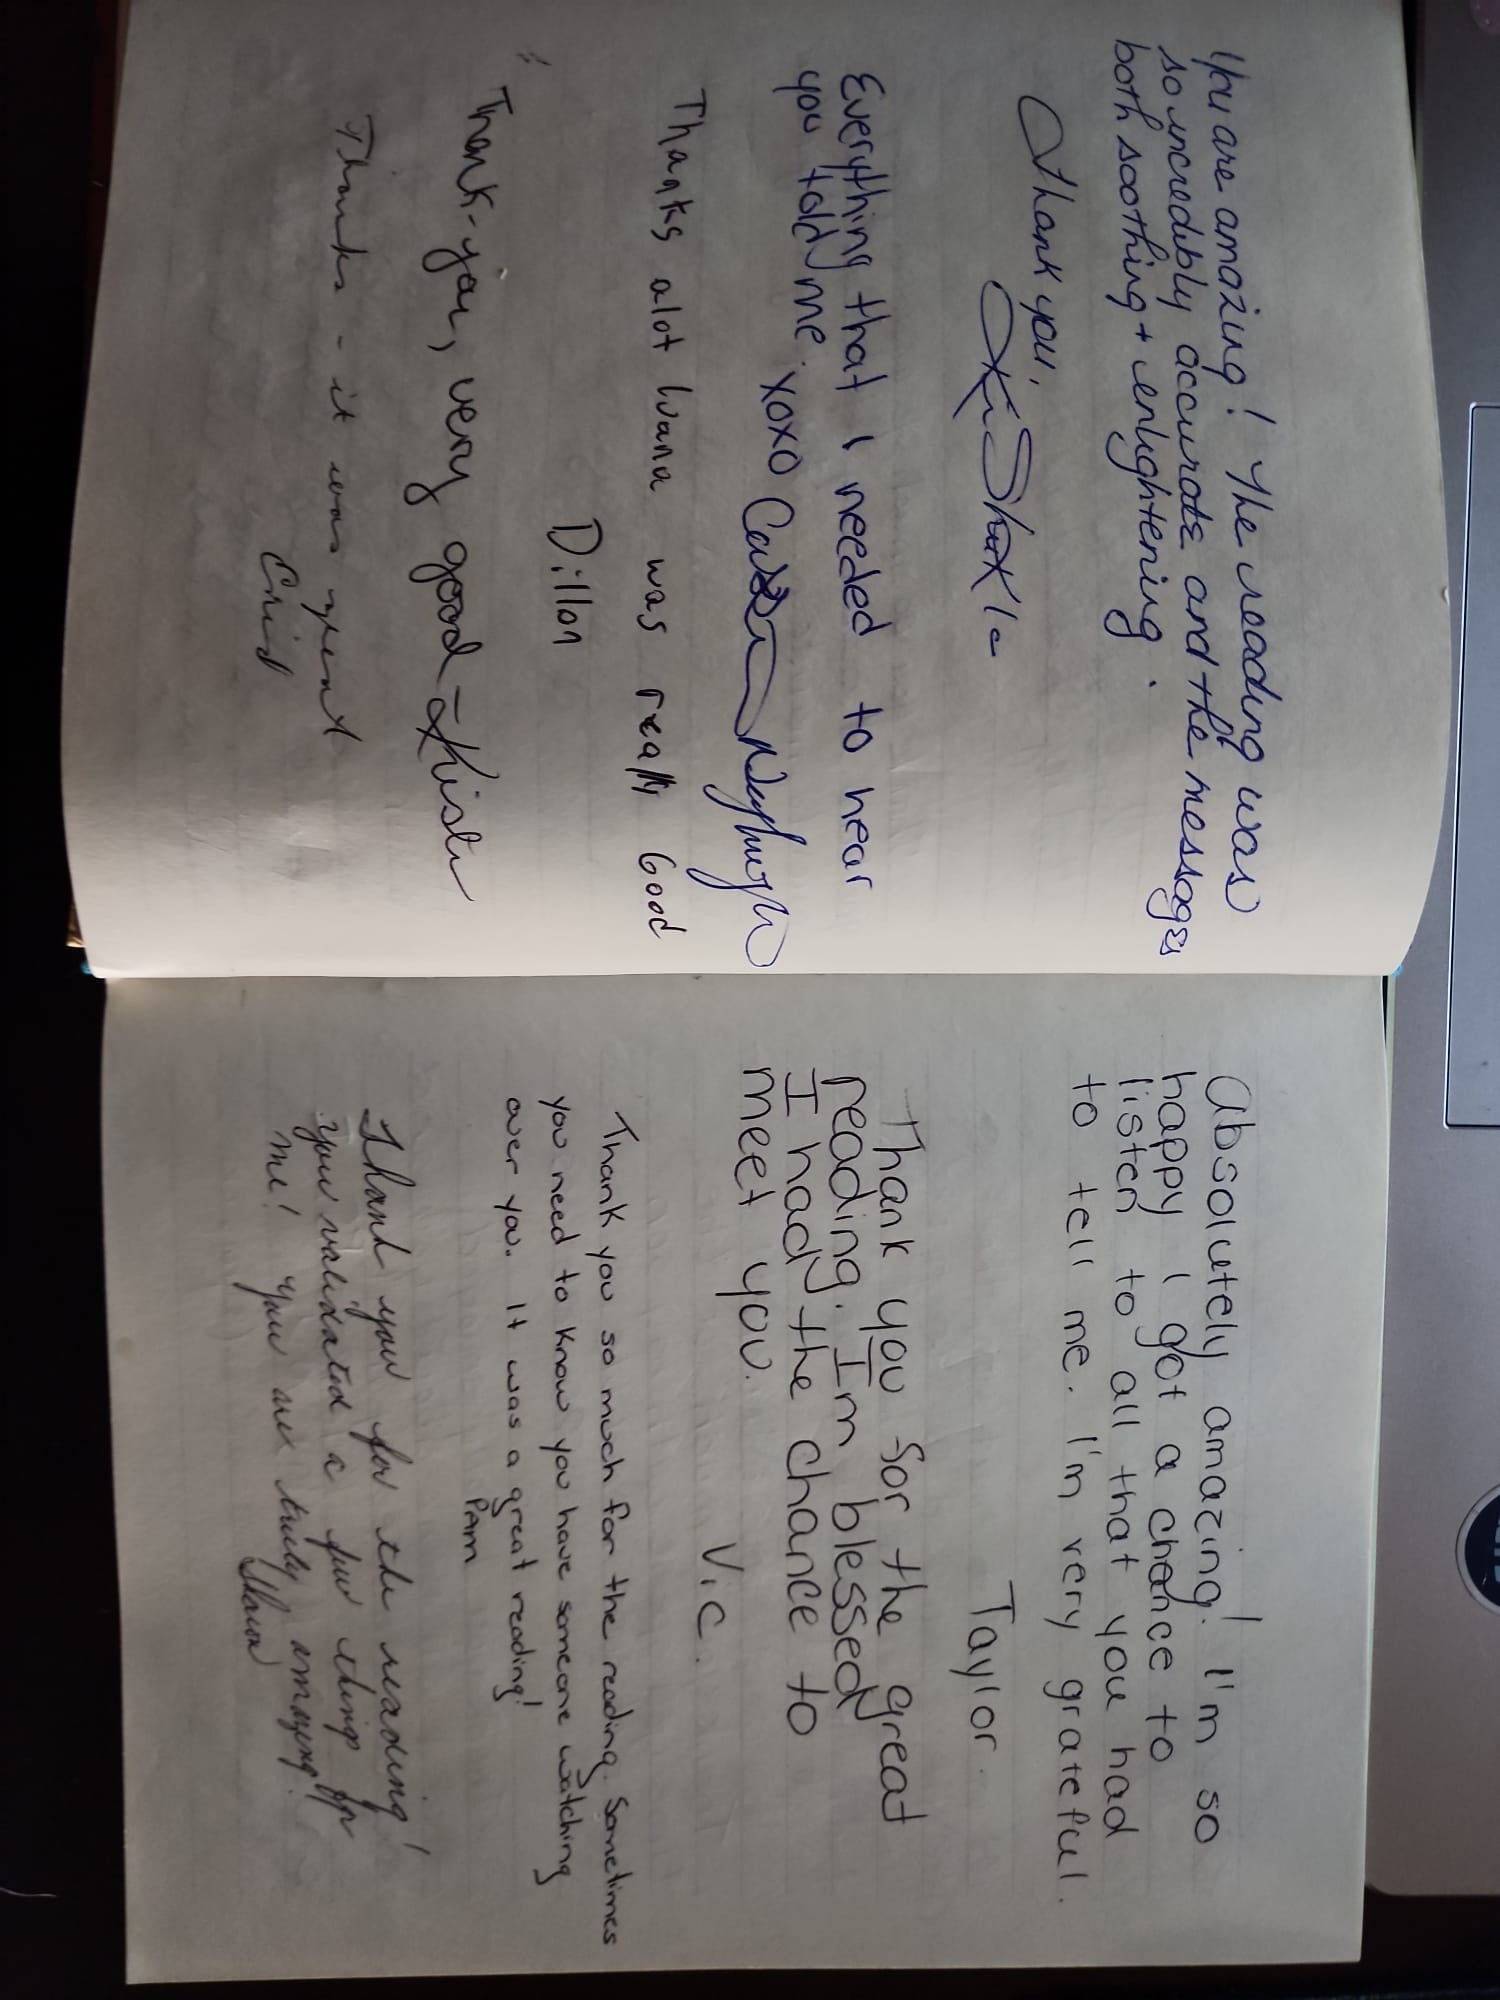 You are amazing! The reading was
so incredibly accurate and the messages
both soothing + enlightening.
Thank you,
Everything that I needed to hear
you told me. xoxo
Thanks alot luana was really Good
Dillon
Thank-you, very good -
Thanks - it was great
Enid
Absolutely amazing! I'm so
happy I got a chance to
listen to all that you had
to tell me. I'm very grateful.
Taylor.
Thank you for the great
reading. Im blessed
I had the chance to
meet you.
Vic.
Thank you so much for the reading. Sometimes
you need to know you have someone watching
over you. It was a great reading!
Pam
Thank you for the reading!
you validated a few things for
me! You are truly amazing!
Sharon